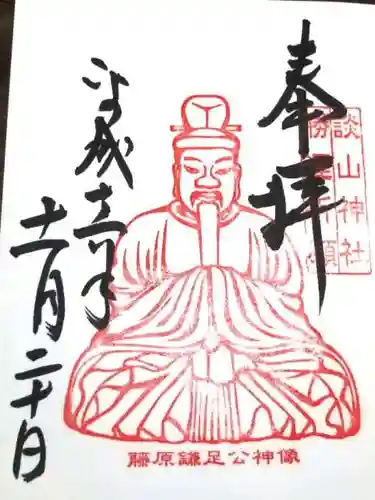 奉拝
談山神社
勝運祈願
平成年
十一月二十日
藤原鎌足公神像